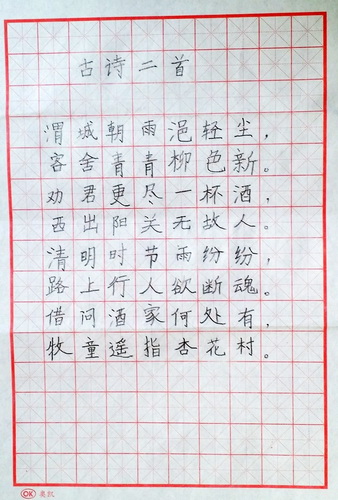 古诗二首
渭城朝雨浥轻尘，
客舍青青柳色新。
劝君更尽一杯酒，
西出阳关无故人。
清明时节雨纷纷，
路上行人欲断魂。
借问酒家何处有，
牧童遥指杏花村。
OK 奥凯